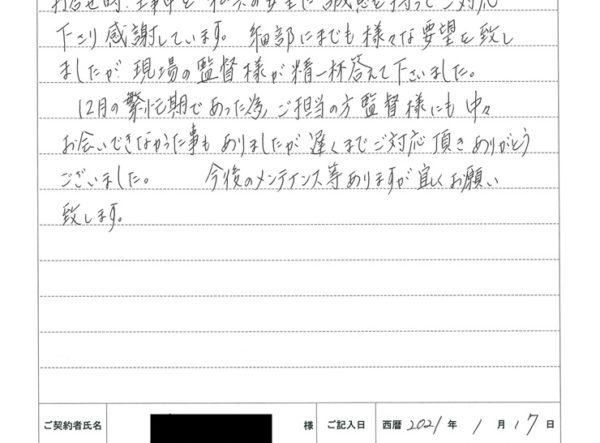 打合せ時、工事中と私共の要望に誠意を持ってご対応
下さり感謝しています。細部にまでも様々な要望を致し
ましたが現場の監督様が精一杯答えて下さいました。
12月の繁忙期であった為、ご担当の方監督様にも中々
お会いできなかった事もありましたが遅くまでご対応頂きありがとう
ございました。 今後のメンテインス等ありますが宜しくお願い
致します。
ご契約者氏名 様 ご記入日 西暦 2021 年 1 月 17 日